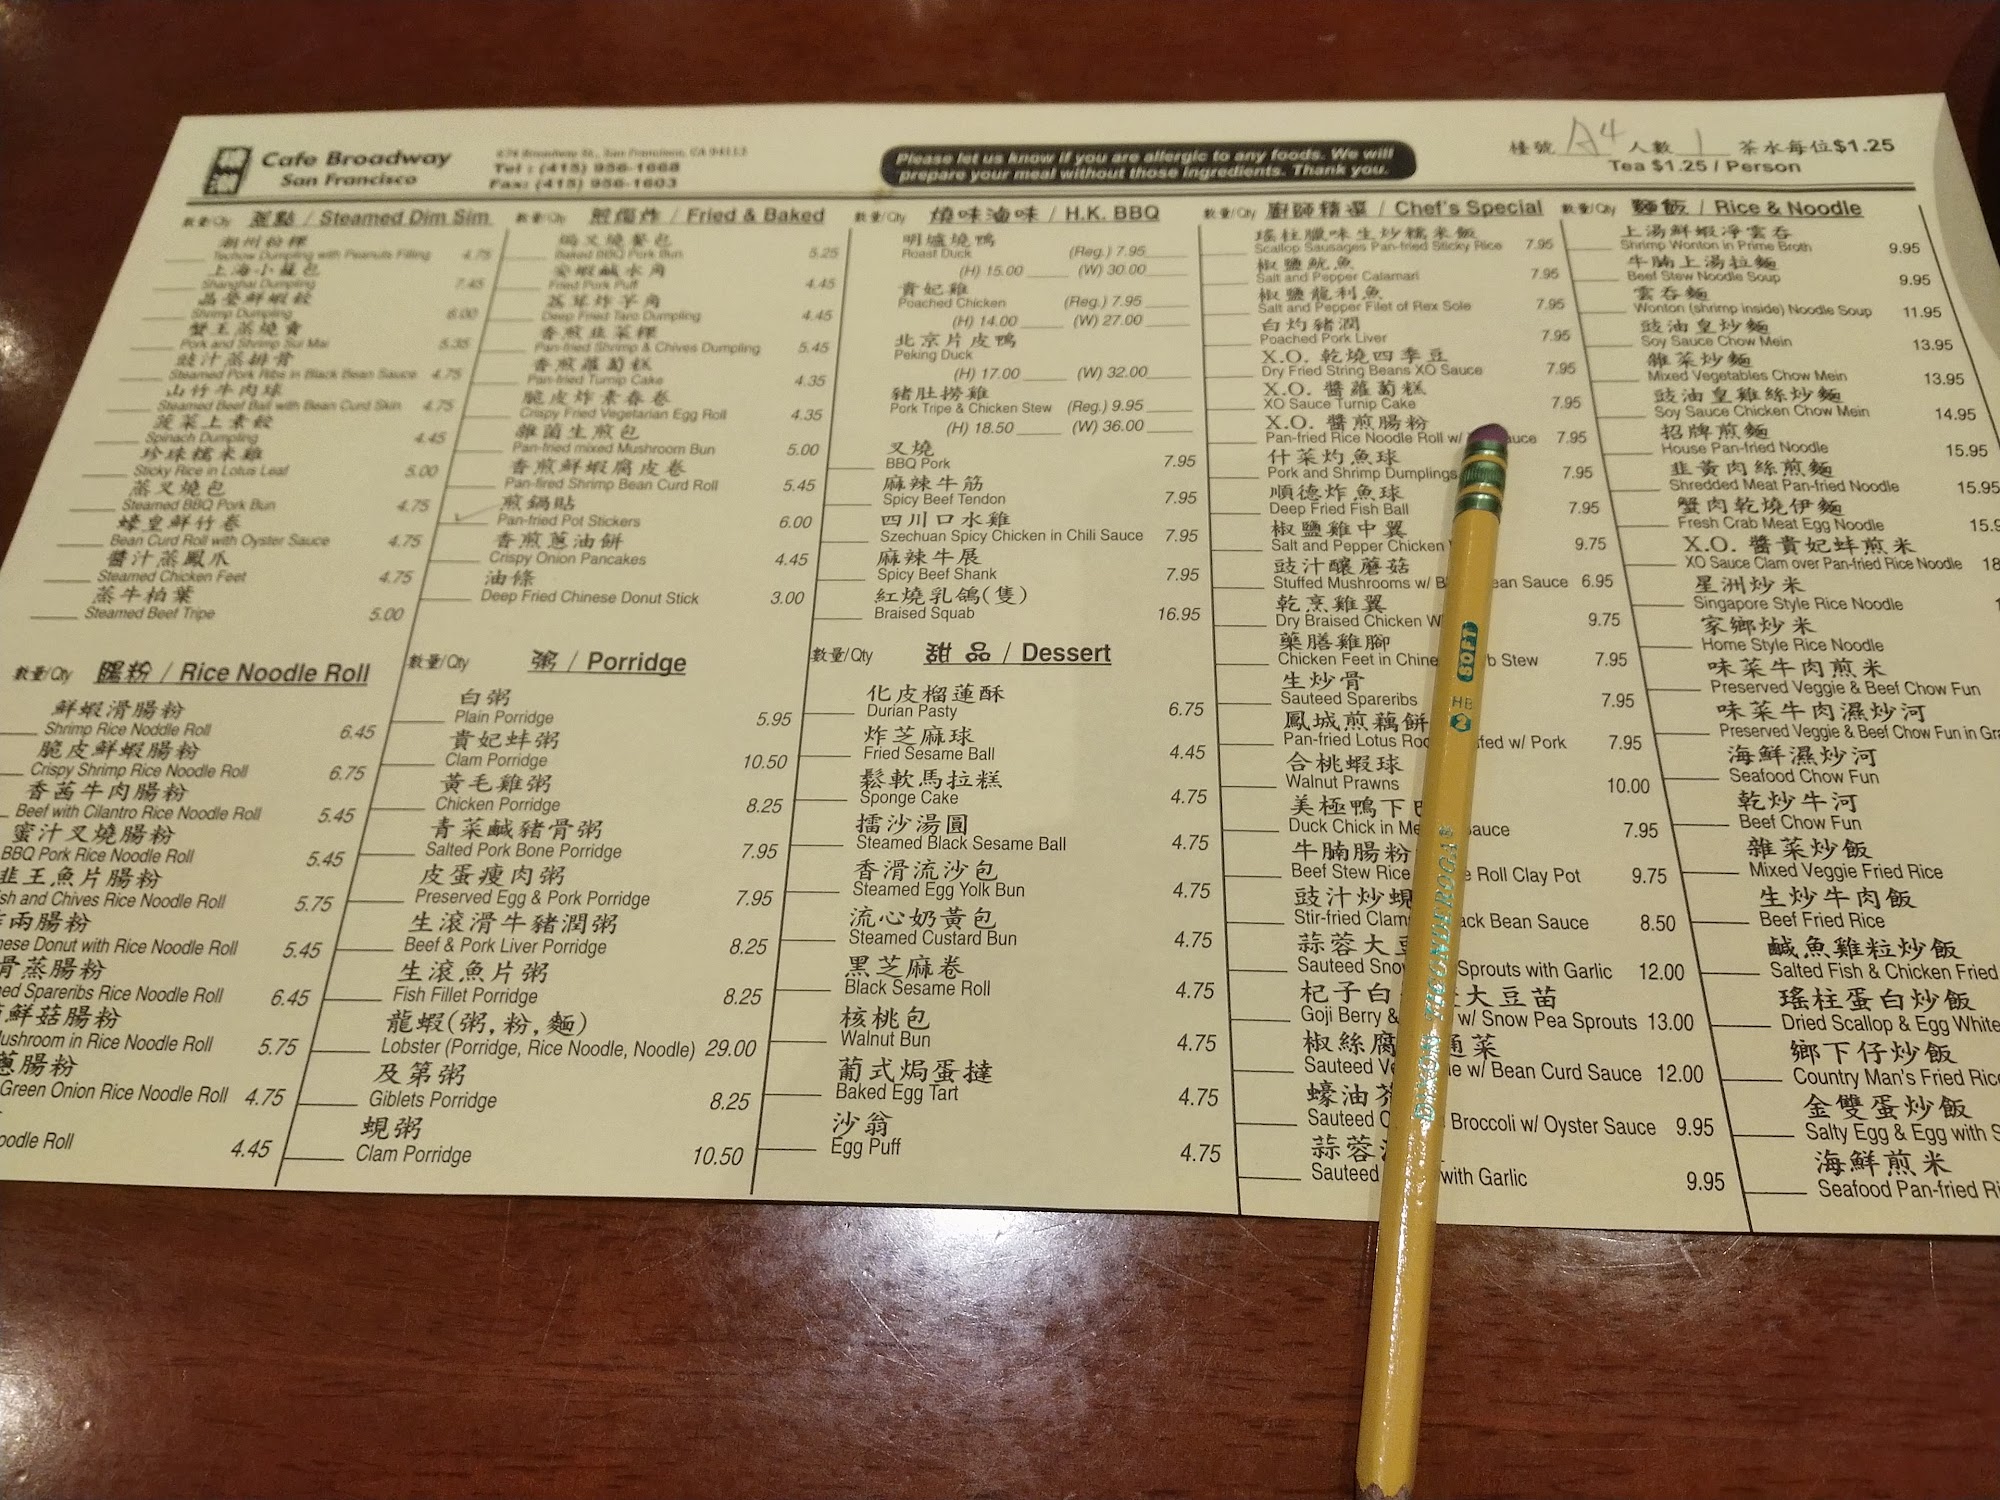 Cafe Broadway
San Francisco
674 Broadway St., San Francisco, CA 94113
Tel : (415) 956-1668
Fax: (415) 956-1603
Please let us know if you are allergic to any foods. We will
prepare your meal without those ingredients. Thank you.
檯號 A4 人數 1 茶水每位$1.25
Tea $1.25 / Person
數量/Qty 蒸點 / Steamed Dim Sim
潮州粉粿
Teochow Dumpling with Peanuts Filling 4.75
上海小籠包
Shanghai Dumpling 7.45
晶瑩鮮蝦餃
Shrimp Dumpling 6.00
蟹王蒸燒賣
Pork and Shrimp Sui Mai 5.35
豉汁蒸排骨
Steamed Pork Ribs in Black Bean Sauce 4.75
山竹牛肉球
Steamed Beef Ball with Bean Curd Skin 4.75
菠菜上素餃
Spinach Dumpling 4.45
珍珠糯米雞
Sticky Rice in Lotus Leaf 5.00
蒸叉燒包
Steamed BBQ Pork Bun 4.75
蠔皇鮮竹卷
Bean Curd Roll with Oyster Sauce 4.75
醬汁蒸鳳爪
Steamed Chicken Feet 4.75
蒸牛柏葉
Steamed Beef Tripe 5.00
數量/Qty 腸粉 / Rice Noodle Roll
鮮蝦滑腸粉
Shrimp Rice Noddle Roll 6.45
脆皮鮮蝦腸粉
Crispy Shrimp Rice Noodle Roll 6.75
香茜牛肉腸粉
Beef with Cilantro Rice Noodle Roll 5.45
蜜汁叉燒腸粉
BBQ Pork Rice Noodle Roll 5.45
韭王魚片腸粉
sh and Chives Rice Noodle Roll 5.75
兩腸粉
nese Donut with Rice Noodle Roll 5.45
骨蒸腸粉
ed Spareribs Rice Noodle Roll 6.45
鮮菇腸粉
ushroom in Rice Noodle Roll 5.75
蔥腸粉
Green Onion Rice Noodle Roll 4.75
oodle Roll 4.45
數量/Qty 煎焗炸 / Fried & Baked
焗叉燒餐包
Baked BBQ Pork Bun 5.25
安蝦鹹水角
Fried Pork Puff 4.45
荔茸炸芋角
Deep Fried Taro Dumpling 4.45
香煎韭菜粿
Pan-fried Shrimp & Chives Dumpling 5.45
香煎蘿蔔糕
Pan-fried Turnip Cake 4.35
脆皮炸素春卷
Crispy Fried Vegetarian Egg Roll 4.35
雜菌生煎包
Pan-fried mixed Mushroom Bun 5.00
香煎鮮蝦腐皮卷
Pan-fired Shrimp Bean Curd Roll 5.45
煎鍋貼
Pan-fried Pot Stickers 6.00
香煎蔥油餅
Crispy Onion Pancakes 4.45
油條
Deep Fried Chinese Donut Stick 3.00
數量/Qty 粥 / Porridge
白粥
Plain Porridge 5.95
貴妃蚌粥
Clam Porridge 10.50
黃毛雞粥
Chicken Porridge 8.25
青菜鹹豬骨粥
Salted Pork Bone Porridge 7.95
皮蛋瘦肉粥
Preserved Egg & Pork Porridge 7.95
生滾滑牛豬潤粥
Beef & Pork Liver Porridge 8.25
生滾魚片粥
Fish Fillet Porridge 8.25
龍蝦(粥,粉,麵)
Lobster (Porridge, Rice Noodle, Noodle) 29.00
及第粥
Giblets Porridge 8.25
蜆粥
Clam Porridge 10.50
數量/Qty 燒味滷味 / H.K. BBQ
明爐燒鴨
Roast Duck (Reg.) 7.95
(H) 15.00 (W) 30.00
貴妃雞
Poached Chicken (Reg.) 7.95
(H) 14.00 (W) 27.00
北京片皮鴨
Peking Duck
(H) 17.00 (W) 32.00
豬肚撈雞
Pork Tripe & Chicken Stew (Reg.) 9.95
(H) 18.50 (W) 36.00
叉燒
BBQ Pork 7.95
麻辣牛筋
Spicy Beef Tendon 7.95
四川口水雞
Szechuan Spicy Chicken in Chili Sauce 7.95
麻辣牛展
Spicy Beef Shank 7.95
紅燒乳鴿(隻)
Braised Squab 16.95
數量/Qty 甜品 / Dessert
化皮榴蓮酥
Durian Pasty 6.75
炸芝麻球
Fried Sesame Ball 4.45
鬆軟馬拉糕
Sponge Cake 4.75
擂沙湯圓
Steamed Black Sesame Ball 4.75
香滑流沙包
Steamed Egg Yolk Bun 4.75
流心奶黃包
Steamed Custard Bun 4.75
黑芝麻卷
Black Sesame Roll 4.75
核桃包
Walnut Bun 4.75
葡式焗蛋撻
Baked Egg Tart 4.75
沙翁
Egg Puff 4.75
數量/Qty 廚師精選 / Chef's Special
瑤柱臘味生炒糯米飯
Scallop Sausages Pan-fried Sticky Rice 7.95
椒鹽魷魚
Salt and Pepper Calamari 7.95
椒鹽龍利魚
Salt and Pepper Filet of Rex Sole 7.95
白灼豬潤
Poached Pork Liver 7.95
X.O. 乾燒四季豆
Dry Fried String Beans XO Sauce 7.95
X.O. 醬蘿蔔糕
XO Sauce Turnip Cake 7.95
X.O. 醬煎腸粉
Pan-fried Rice Noodle Roll w/ auce 7.95
什菜灼魚球
Pork and Shrimp Dumplings 7.95
順德炸魚球
Deep Fried Fish Ball 7.95
椒鹽雞中翼
Salt and Pepper Chicken 9.75
豉汁釀蘑菇
Stuffed Mushrooms w/ B ean Sauce 6.95
乾烹雞翼
Dry Braised Chicken W 9.75
藥膳雞腳
Chicken Feet in Chine b Stew 7.95
生炒骨
Sauteed Spareribs 7.95
鳳城煎藕餅
Pan-fried Lotus Roo fed w/ Pork 7.95
合桃蝦球
Walnut Prawns 10.00
美極鴨下巴
Duck Chick in Me auce 7.95
牛腩腸粉
Beef Stew Rice e Roll Clay Pot 9.75
豉汁炒蜆
Stir-fried Clams ack Bean Sauce 8.50
蒜蓉大豆
Sauteed Snow Sprouts with Garlic 12.00
杞子白 大豆苗
Goji Berry & w/ Snow Pea Sprouts 13.00
椒絲腐 通菜
Sauteed Ve le w/ Bean Curd Sauce 12.00
蠔油芥
Sauteed C Broccoli w/ Oyster Sauce 9.95
蒜蓉
Sauteed with Garlic 9.95
數量/Qty 麵飯 / Rice & Noodle
上湯鮮蝦凈雲吞
Shrimp Wonton in Prime Broth 9.95
牛腩上湯拉麵
Beef Stew Noodle Soup 9.95
雲吞麵
Wonton (shrimp inside) Noodle Soup 11.95
豉油皇炒麵
Soy Sauce Chow Mein 13.95
雜菜炒麵
Mixed Vegetables Chow Mein 13.95
豉油皇雞絲炒麵
Soy Sauce Chicken Chow Mein 14.95
招牌煎麵
House Pan-fried Noodle 15.95
韭黃肉絲煎麵
Shredded Meat Pan-fried Noodle 15.95
蟹肉乾燒伊麵
Fresh Crab Meat Egg Noodle 15.9
X.O. 醬貴妃蚌煎米
XO Sauce Clam over Pan-fried Rice Noodle 18
星洲炒米
Singapore Style Rice Noodle
家鄉炒米
Home Style Rice Noodle
味菜牛肉煎米
Preserved Veggie & Beef Chow Fun
味菜牛肉濕炒河
Preserved Veggie & Beef Chow Fun in Gra
海鮮濕炒河
Seafood Chow Fun
乾炒牛河
Beef Chow Fun
雜菜炒飯
Mixed Veggie Fried Rice
生炒牛肉飯
Beef Fried Rice
鹹魚雞粒炒飯
Salted Fish & Chicken Fried
瑤柱蛋白炒飯
Dried Scallop & Egg White
鄉下仔炒飯
Country Man's Fried Rice
金雙蛋炒飯
Salty Egg & Egg with S
海鮮煎米
Seafood Pan-fried Ri
DIXON TICONDEROGA® HB 2 SOFT